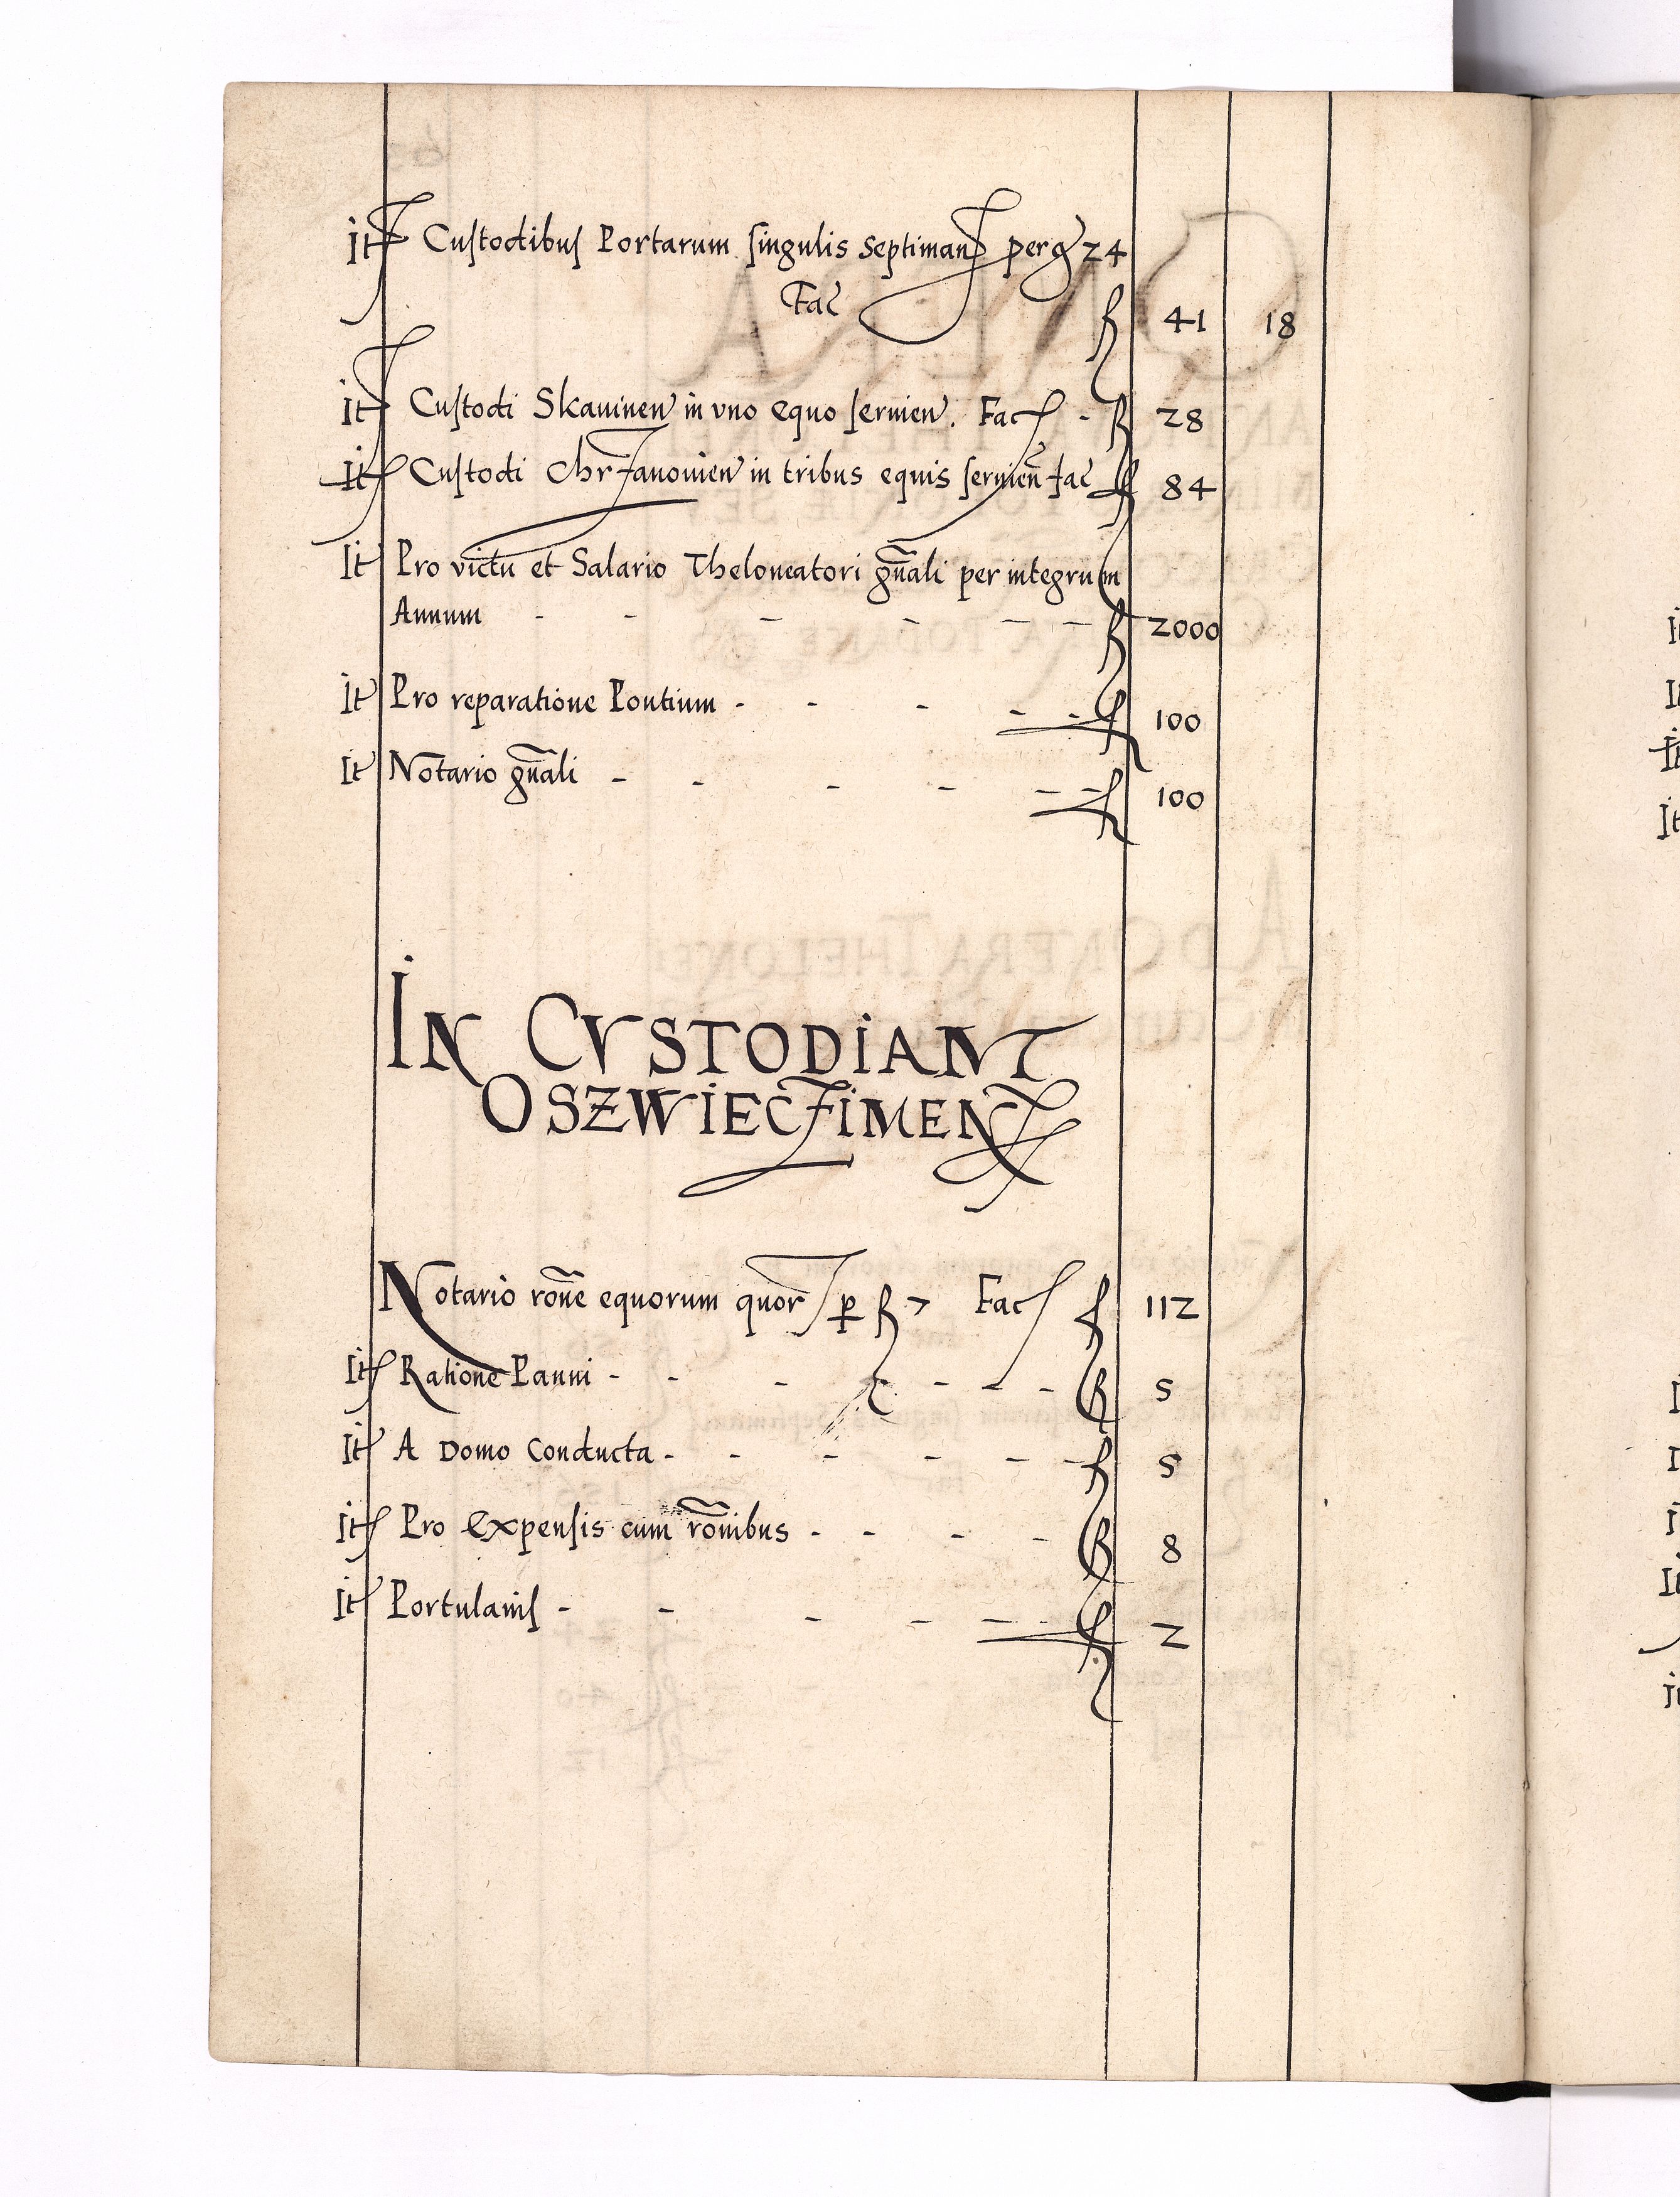 It Custodibus Portarum singulis septiman per g 24
Fac fl 41 18
It Custodi Skauinen in vno equo seruien. Fac - fl 28
It Custodi Chrzanouien in tribus equis seruien fac fl 84
It Pro victu et Salario Theloneatori gnali per integrum
Annum - - - - - - fl 2000
It Pro reparatione Pontium - - - - - fl 100
It Notario gnali - - - - - - fl 100
IN CVSTODIA NT
OSZWIECZIMEN
Notario rone equorum quor 4 p fl 7 Fac fl 112
It Ratione Panni - - - - - - fl 5
It A Domo Conducta - - - - - - fl 5
It Pro Expensis cum ronibus - - - - fl 8
It Portulanis - - - - - - fl 2